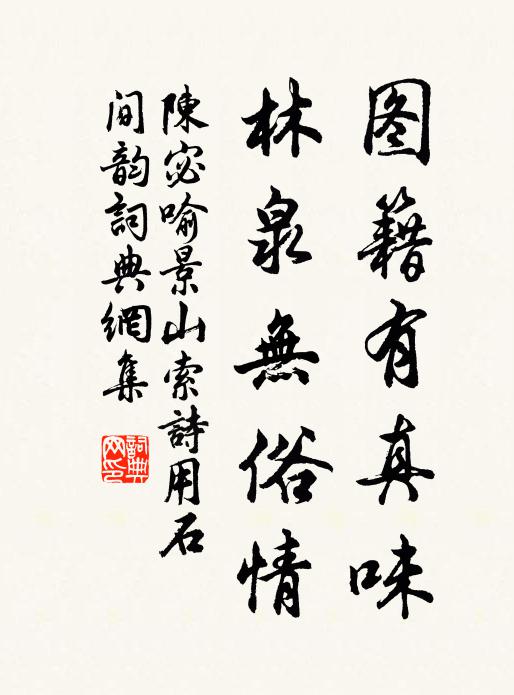 图籍有真味
林泉無俗情
陳宓喻景山索詩用石
間韵詞典網集
詞典網印